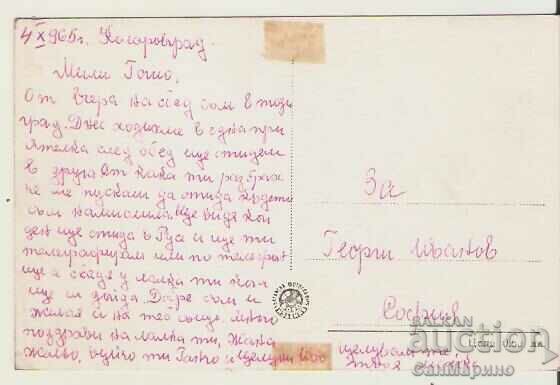 4/X 965г. Коларовград.
Мили Гошо,
От вчера на обед сом в този
град. Днес ходихме в една при
ятелка след обед ще отидем
в друга. От кака ти разбрах
че ме пускаш да отида където
съм намислила. Ще видя кой
ден ще отида в Русе и ще ти
телеграфирам или по телефон
ще се обадя у майка ти кога
ще си дойда. Добре сом и
желая и на теб също. Много
поздрави на майка ти,
и целуни
целувам те,
твоя
За
Георги Иванов
София
Цена 0,0 лв.
BALKAN
auction
СанМарино